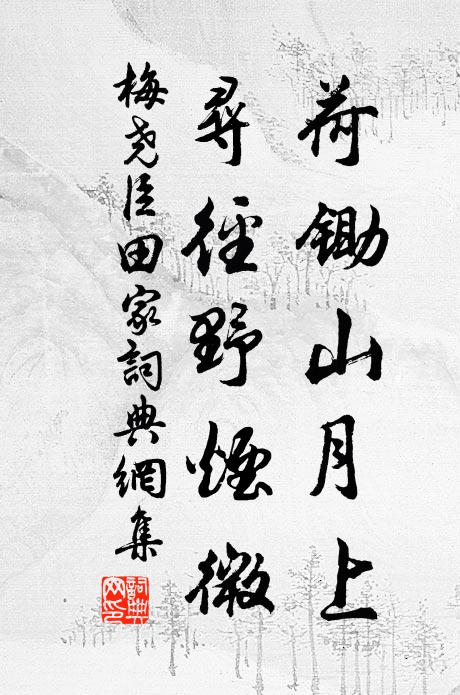 荷鋤山月上
尋徑野煙微
梅堯臣田家詞典網集